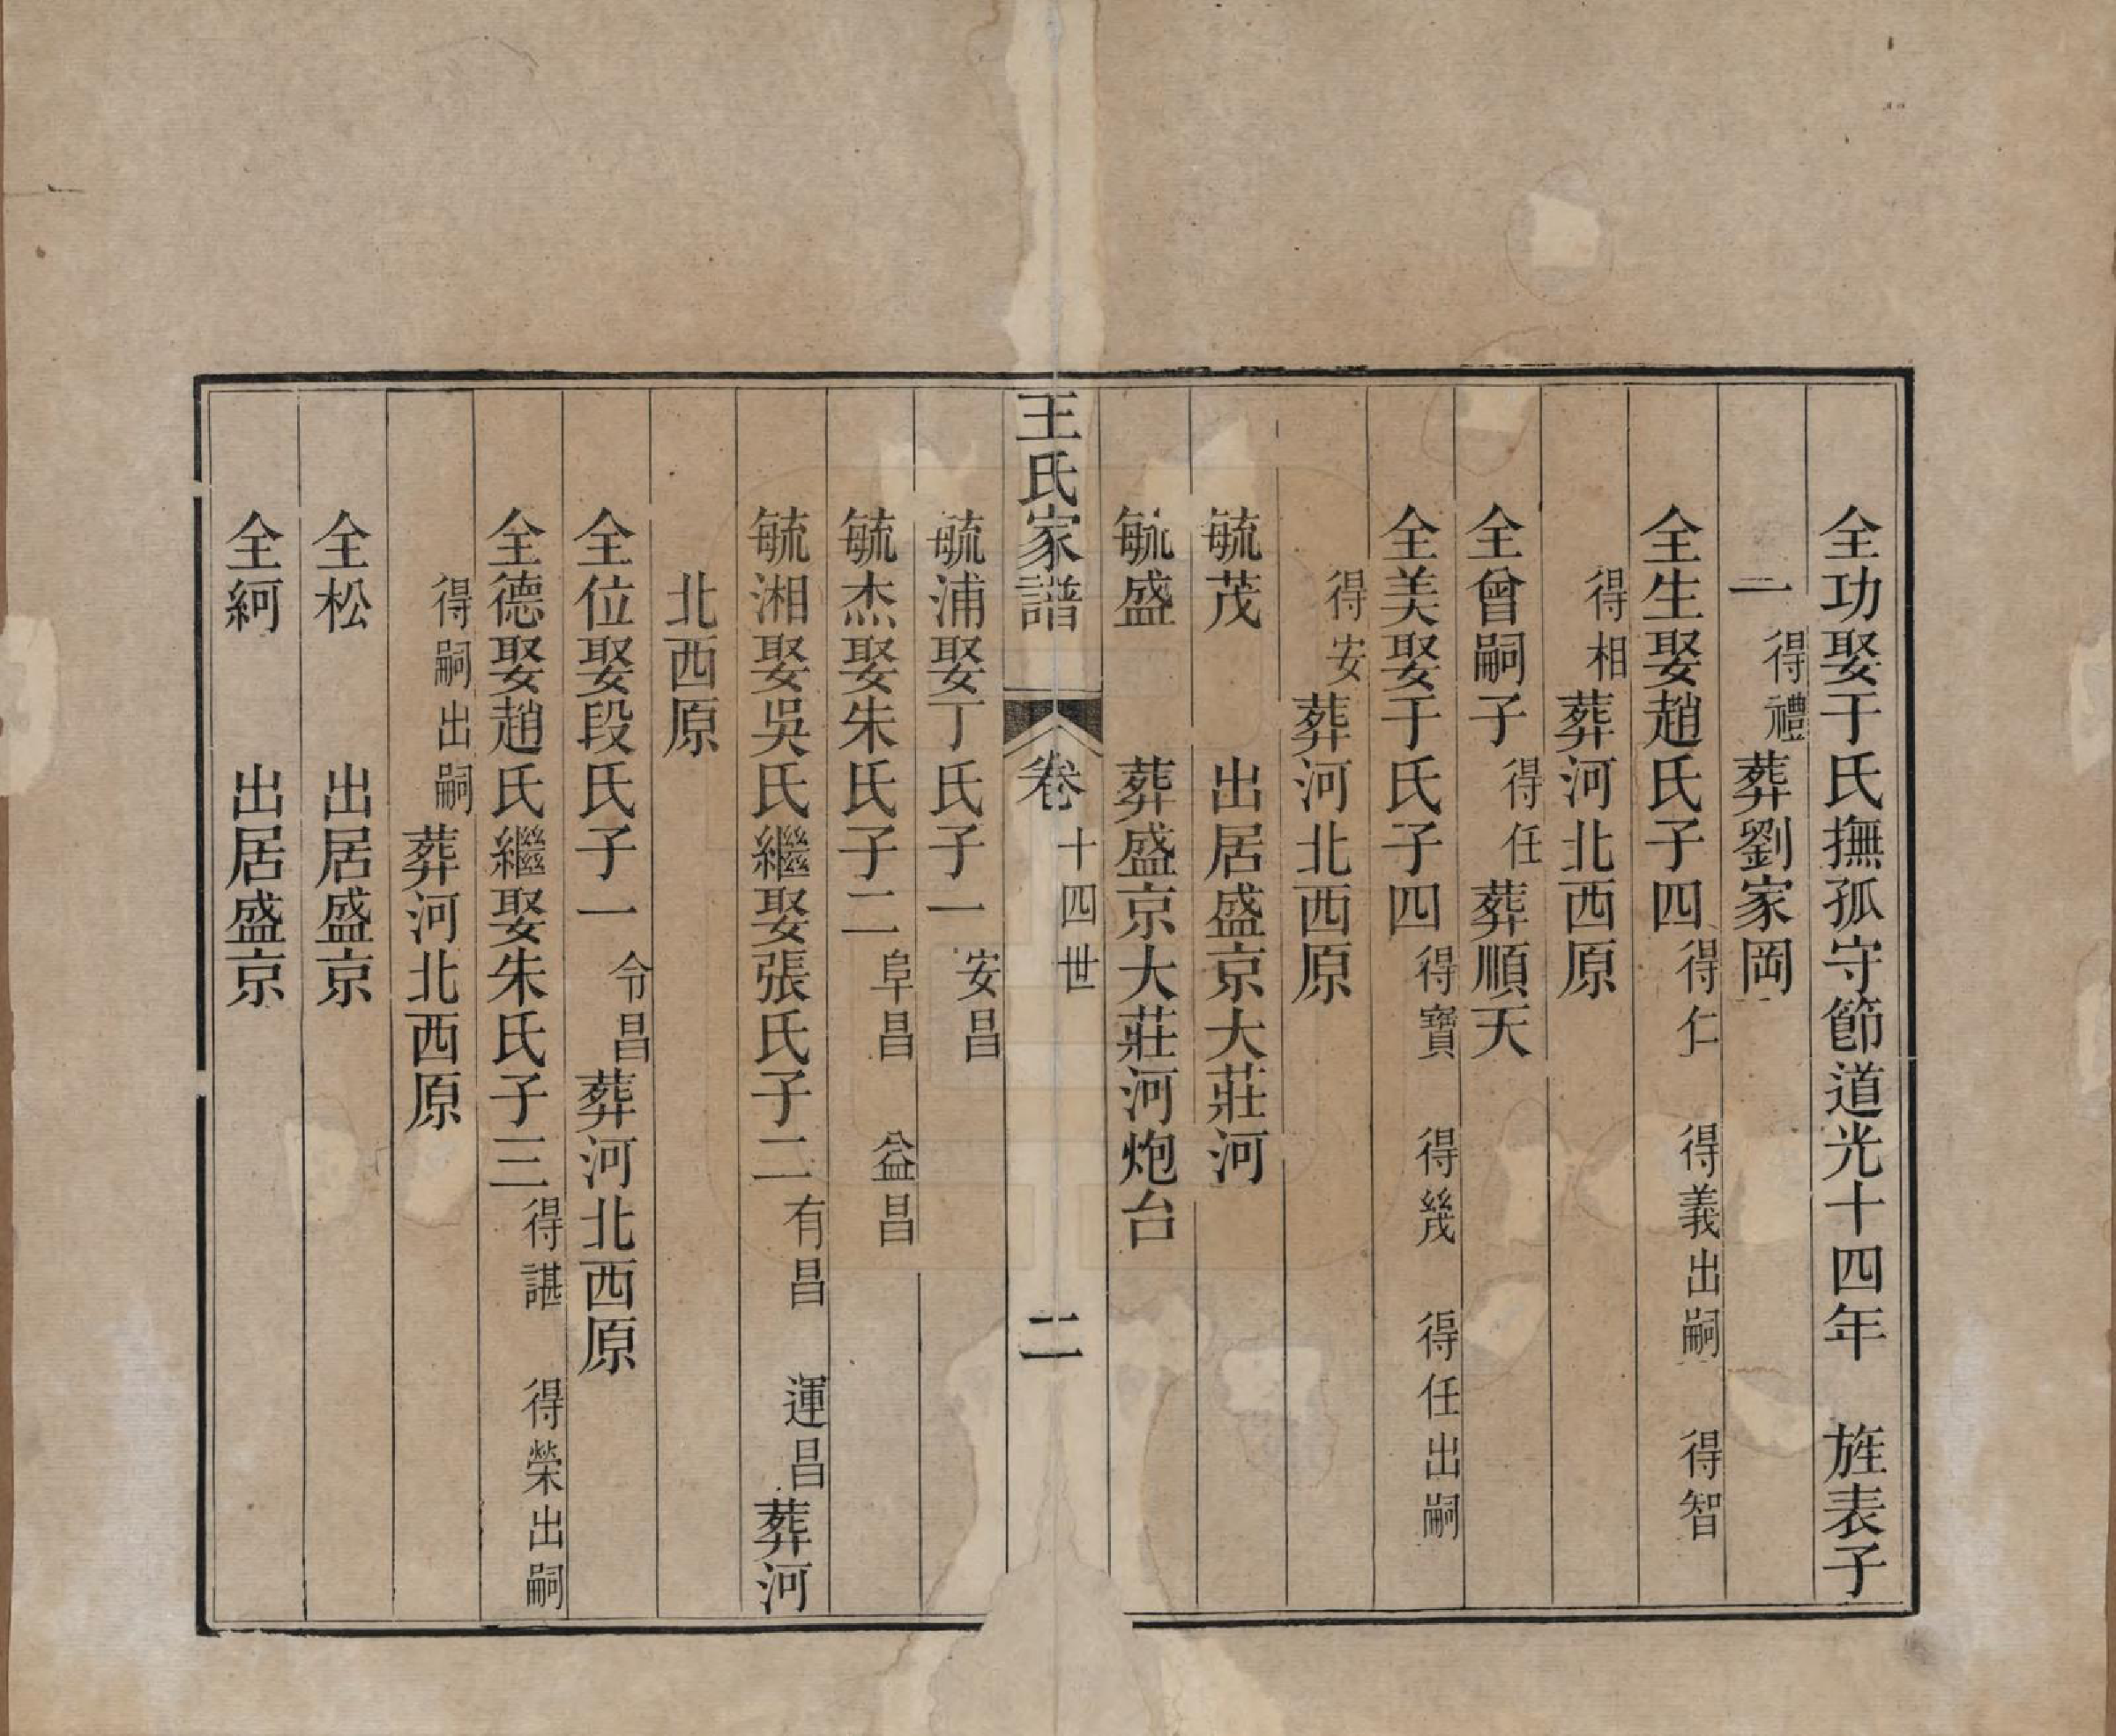 全功娶于氏撫孤守節道光十四年　旌表子
一得禮葬劉家岡
全生娶趙氏子四得仁　得義出嗣　得智
得相葬河北西原
全曾嗣子得任葬順天
全美娶于氏子四得寶　得幾　得任出嗣
得安葬河北西原
毓茂　　出居盛京大莊河
毓盛　　葬盛京大莊河炮台
王氏家譜　卷十四世　二
毓浦娶丁氏子一安昌
毓杰娶朱氏子二阜昌　益昌
毓湘娶吳氏繼娶張氏子二有昌　運昌葬河
北西原
全位娶段氏子一令昌葬河北西原
全德娶趙氏繼娶朱氏子三得諶　得榮出嗣
得嗣出嗣葬河北西原
全松　　出居盛京
全絅　　出居盛京